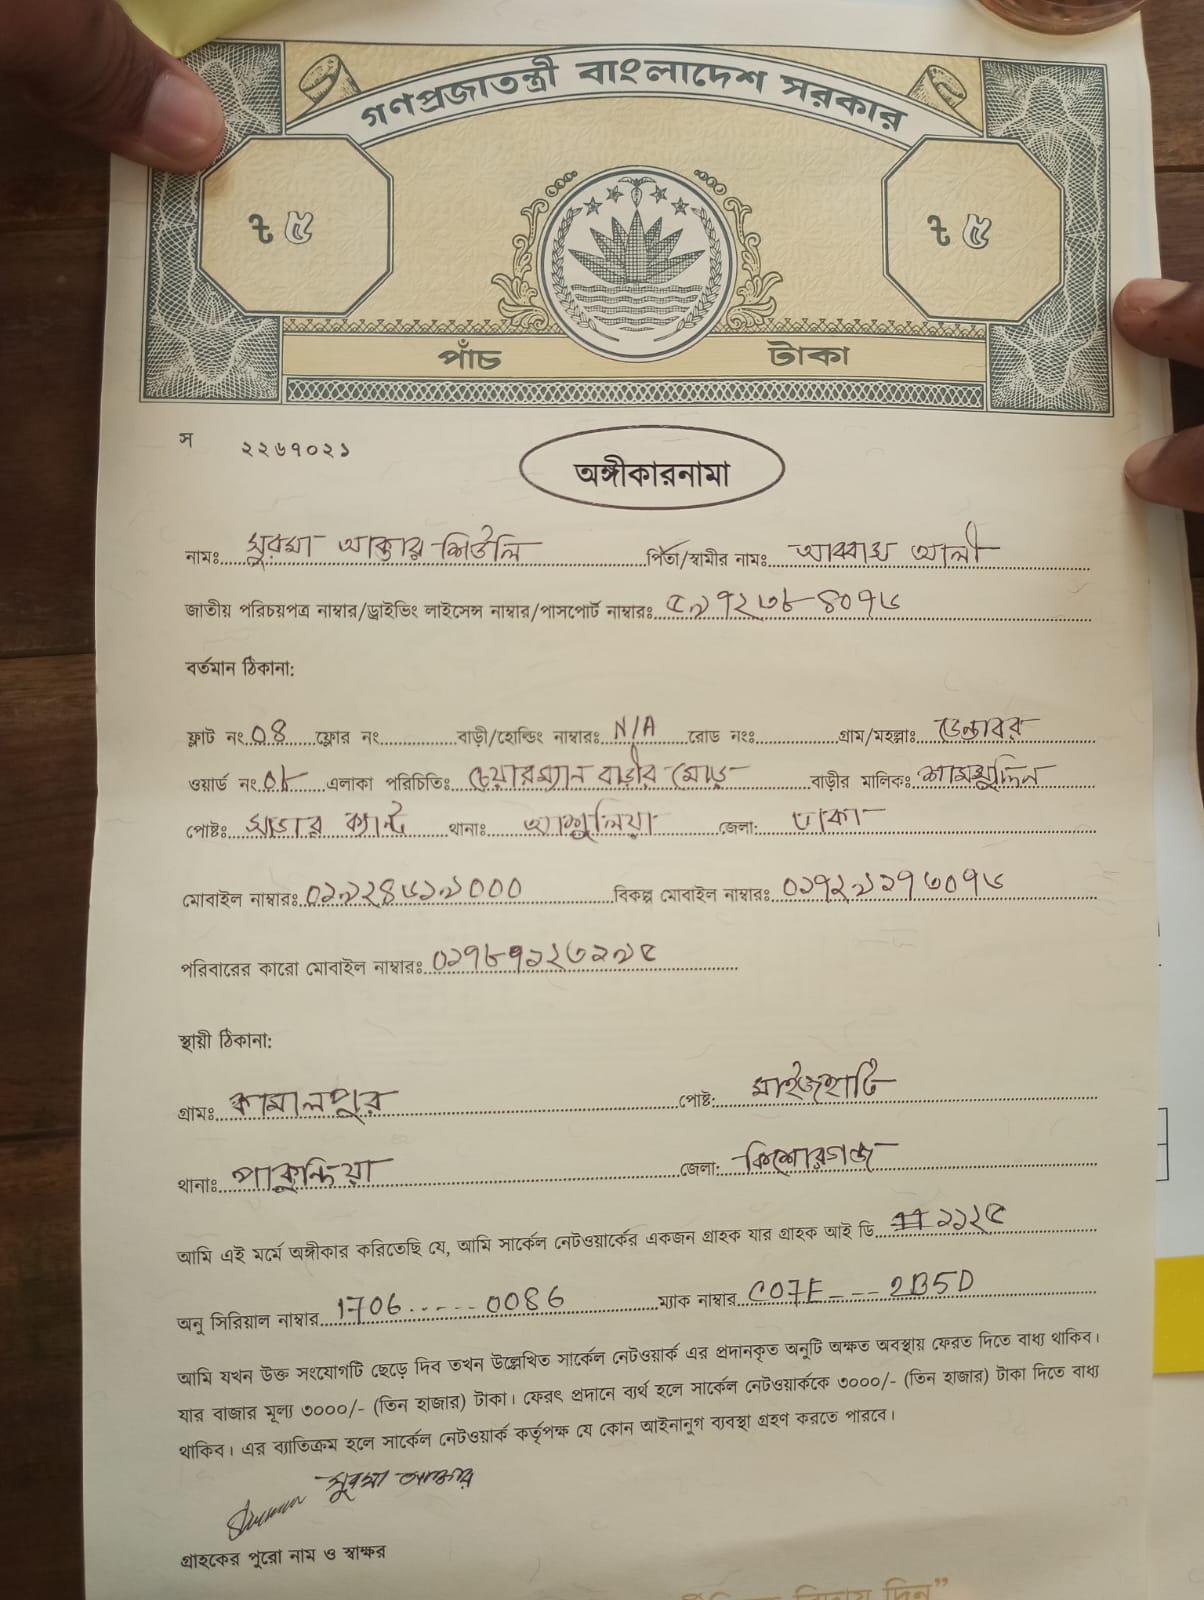 গণপ্রজাতন্ত্রী বাংলাদেশ সরকার
৳ ৫ ৳ ৫
পাঁচ টাকা
স ২২৬৭০২১
অঙ্গীকারনামা
নামঃ সুরমা আক্তার শিউলি পিতা/স্বামীর নামঃ আব্বাস আলী
জাতীয় পরিচয়পত্র নাম্বার/ড্রাইভিং লাইসেন্স নাম্বার/পাসপোর্ট নাম্বারঃ ৫৯৭২৩৮৪০৭৬
বর্তমান ঠিকানা:
ফ্লাট নং 08 ফ্লোর নং বাড়ী/হোল্ডিং নাম্বারঃ N/A রোড নংঃ গ্রাম/মহল্লাঃ ডেন্ডাবর
ওয়ার্ড নং ০৮ এলাকা পরিচিতিঃ চেয়ারম্যান বাড়ীর মোড় বাড়ীর মালিকঃ শামসুদ্দিন
পোষ্টঃ সাভার ক্যান্ট থানাঃ আশুলিয়া জেলা: ঢাকা
মোবাইল নাম্বারঃ ০১৯২৪৬১৯০০০ বিকল্প মোবাইল নাম্বারঃ
পরিবারের কারো মোবাইল নাম্বারঃ
স্থায়ী ঠিকানা:
গ্রামঃ কামালপুর পোষ্ট: মাইজহাটি
থানাঃ পাকুন্দিয়া জেলা: কিশোরগঞ্জ
আমি এই মর্মে অঙ্গীকার করিতেছি যে, আমি সার্কেল নেটওয়ার্কের একজন গ্রাহক যার গ্রাহক আই ডি ১১২৫
অনু সিরিয়াল নাম্বার 1706------0086 ম্যাক নাম্বার C07E---2B5D
আমি যখন উক্ত সংযোগটি ছেড়ে দিব তখন উল্লেখিত সার্কেল নেটওয়ার্ক এর প্রদানকৃত অনুটি অক্ষত অবস্থায় ফেরত দিতে বাধ্য থাকিব।
যার বাজার মূল্য ৩০০০/- (তিন হাজার) টাকা। ফেরৎ প্রদানে ব্যর্থ হলে সার্কেল নেটওয়ার্ককে ৩০০০/- (তিন হাজার) টাকা দিতে বাধ্য
থাকিব। এর ব্যাতিক্রম হলে সার্কেল নেটওয়ার্ক কর্তৃপক্ষ যে কোন আইনানুগ ব্যবস্থা গ্রহণ করতে পারবে।
সুরমা আক্তার
গ্রাহকের পুরো নাম ও স্বাক্ষর
দিন”